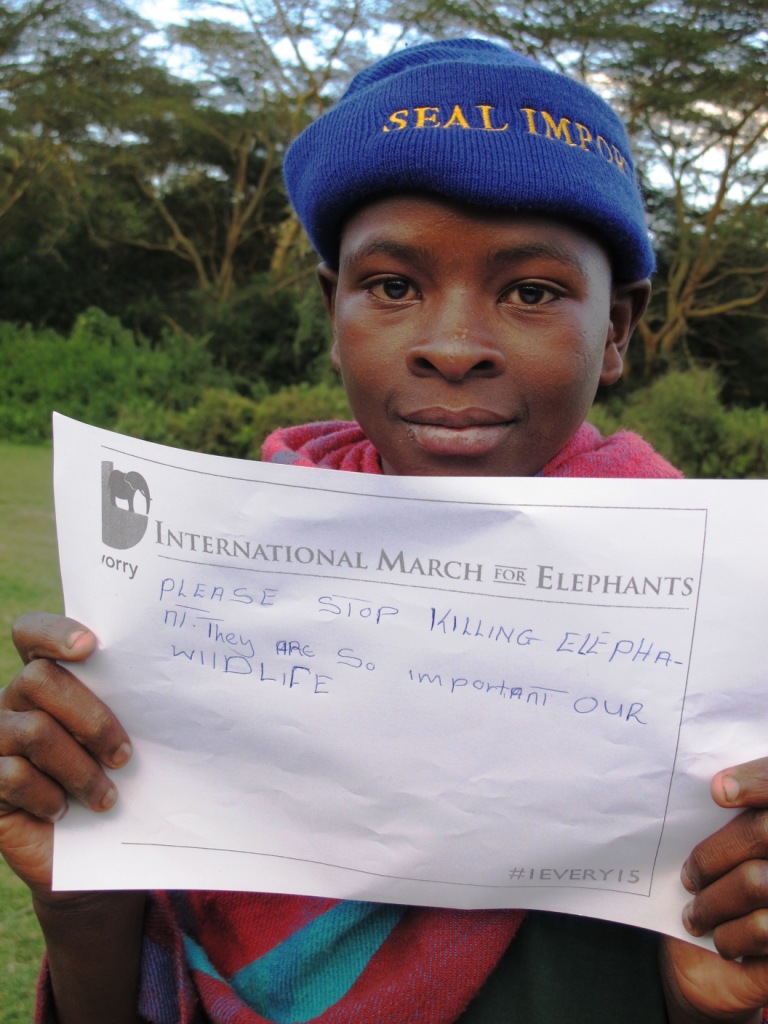 ivory
INTERNATIONAL MARCH FOR ELEPHANTS
PLEASE STOP KILLING ELEPHA-
NT. They ARE So IMPORTANT OUR
WIlDLIFE
#1EVERY15
SEAL IMPOR